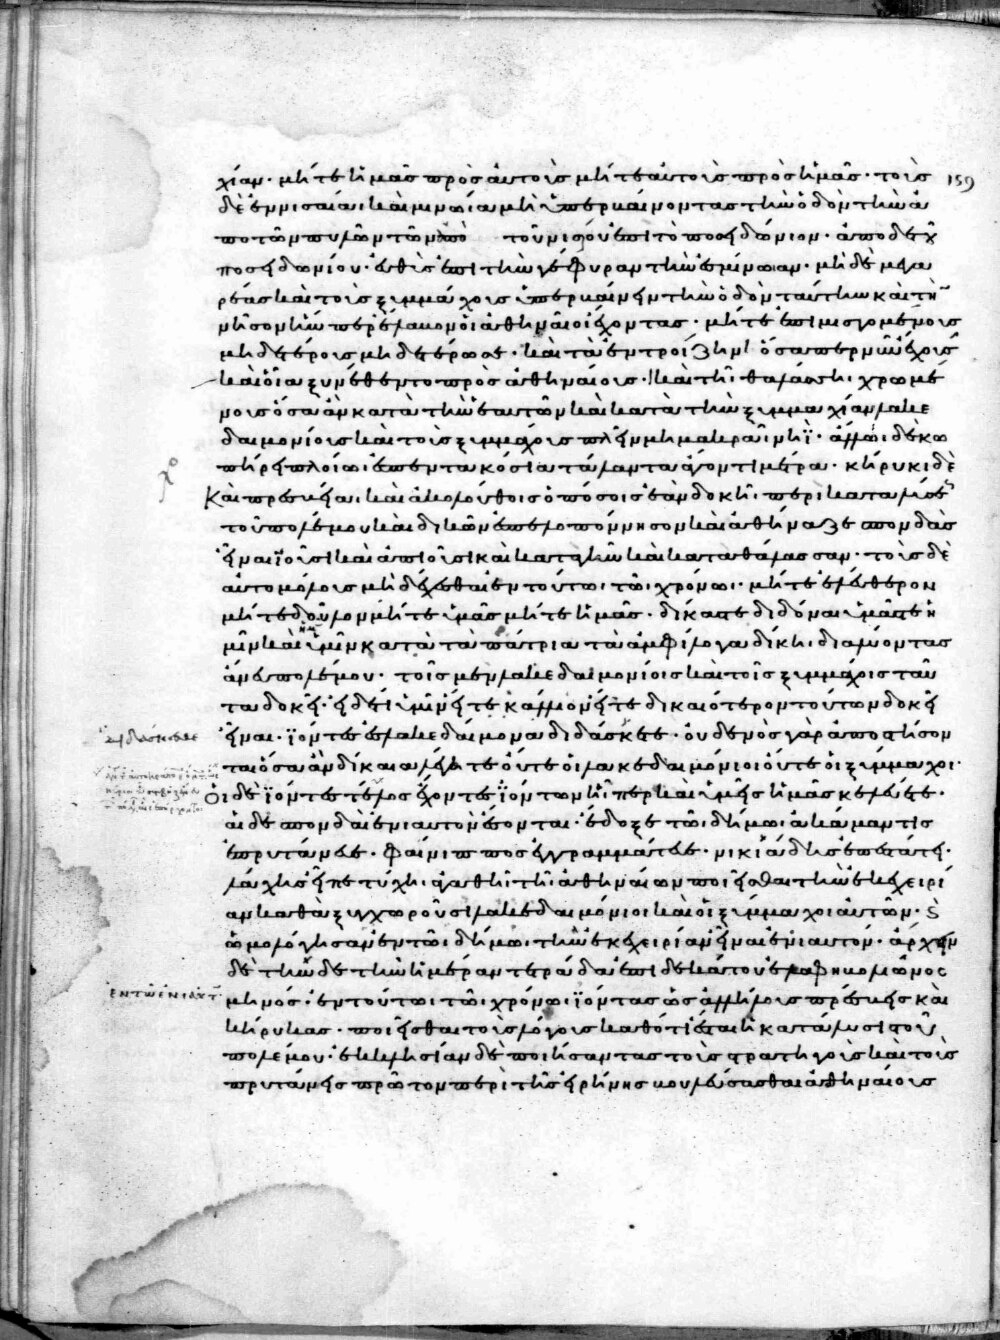 χίαν· μήτε ἡμᾶς πρὸς αὐτοὺς μήτε αὐτοὺς πρὸς ἡμᾶς· τοὺς
159
δὲ ἐν νισαίαι καὶ μινώαι μὴ ὑπερβαίνοντας τὴν ὁδὸν τὴν ἀ
πὸ τῶν πυλῶν τῶν ἀπὸ τοῦ νίσου ἐπὶ τὸ ποσειδώνιον· ἀπὸ δὲ τοῦ
ποσειδωνίου· εὐθὺς ἐπὶ τὴν γέφυραν τὴν ἐς μίνωαν· μηδὲ μεγα
ρέας καὶ τοὺς ξυμμάχους ὑπερβαίνειν τὴν ὁδὸν ταύτην καὶ τὴν
νῆσον ἥνπερ ἔλαβον οἱ ἀθηναῖοι ἔχοντας· μήτε ἐπιμισγομένους
μηδετέρους μηδετέρωσε· καὶ τὰ ἐν τροιζῆνι ὅσαπερ νῦν ἔχουσι
καὶ οἷα ξυνέθεντο πρὸς ἀθηναίους· καὶ τῆι θαλάσσηι χρωμέ
νους ὅσα ἂν κατὰ τὴν ἑαυτῶν καὶ κατὰ τὴν ξυμμαχίαν λακε
δαιμονίους καὶ τοὺς ξυμμάχους πλεῖν μὴ μακρᾶι νηῒ· ἄλλωι δὲ κω
πήρει πλοίωι ἐς πεντακόσια τάλαντα ἄγοντι μέτρα· κήρυκι δὲ
καὶ πρεσβείαι καὶ ἀκολούθοις ὁπόσοις ἐὰν δοκῆι· περὶ καταλύσεως
τοῦ πολέμου καὶ δικῶν ἐς πελοπόννησον καὶ ἀθήναζε σπονδὰς
εἶναι ἰοῦσι καὶ ἀπιοῦσι καὶ κατὰ γῆν καὶ κατὰ θάλασσαν· τοὺς δὲ
αὐτομόλους μὴ δέχεσθαι ἐν τούτωι τῶι χρόνωι· μήτε ἐλεύθερον
μήτε δοῦλον μήτε ὑμᾶς μήτε ἡμᾶς· δίκας τε διδόναι ὑμᾶς τε ἡ
μῖν καὶ ὑμῖν κατὰ τὰ πάτρια τὰ ἀμφίλογα δίκηι διαλύοντας
ἄνευ πολέμου· τοῖς μὲν λακεδαιμονίοις καὶ τοῖς ξυμμάχοις ταῦ
τα δοκεῖ· εἰ δέ τι ὑμῖν εἴτε κάλλιον εἴτε δικαιότερον τούτων δοκεῖ
εἶναι· ἰόντες ἐς λακεδαίμονα διδάσκετε· οὐδενὸς γὰρ ἀποστήσον
ται ὅσα ἂν δίκαια λέγητε οὔτε οἱ λακεδαιμόνιοι οὔτε οἱ ξύμμαχοι·
οἱ δὲ ἰόντες τέλος ἔχοντες ἰόντων ἧιπερ καὶ ὑμεῖς ἡμᾶς κελεύετε·
αἱ δὲ σπονδαὶ ἐνιαυτὸν ἔσονται· ἔδοξε τῶι δήμωι ἀκάμαντις
ἐπρυτάνευε· φαίνιππος ἐγραμμάτευε· νικιάδης ἐπεστάτει·
λάχης εἶπε τύχηι ἀγαθῆι τῆι ἀθηναίων ποιεῖσθαι τὴν ἐκεχειρί
αν καθὰ ξυγχωροῦσι λακεδαιμόνιοι καὶ οἱ ξύμμαχοι αὐτῶν· καὶ
ὡμολόγησαν ἐν τῶι δήμωι τὴν ἐκεχειρίαν εἶναι ἐνιαυτόν· ἄρχειν
δὲ τήνδε τὴν ἡμέραν τετράδα ἐπὶ δέκα τοῦ ἐλαφηβολιῶνος
ἐν τῶ ἐνιαυτ
μηνός· ἐν τούτωι τῶι χρόνωι ἰόντας ὡς ἀλλήλους πρέσβεις καὶ
κήρυκας· ποιεῖσθαι τοὺς λόγους καθότι ἔσται ἡ κατάλυσις τοῦ
πολέμου· ἐκκλησίαν δὲ ποιήσαντας τοὺς στρατηγοὺς καὶ τοὺς
πρυτάνεις πρῶτον περὶ τῆς εἰρήνης βουλεύσασθαι ἀθηναίους